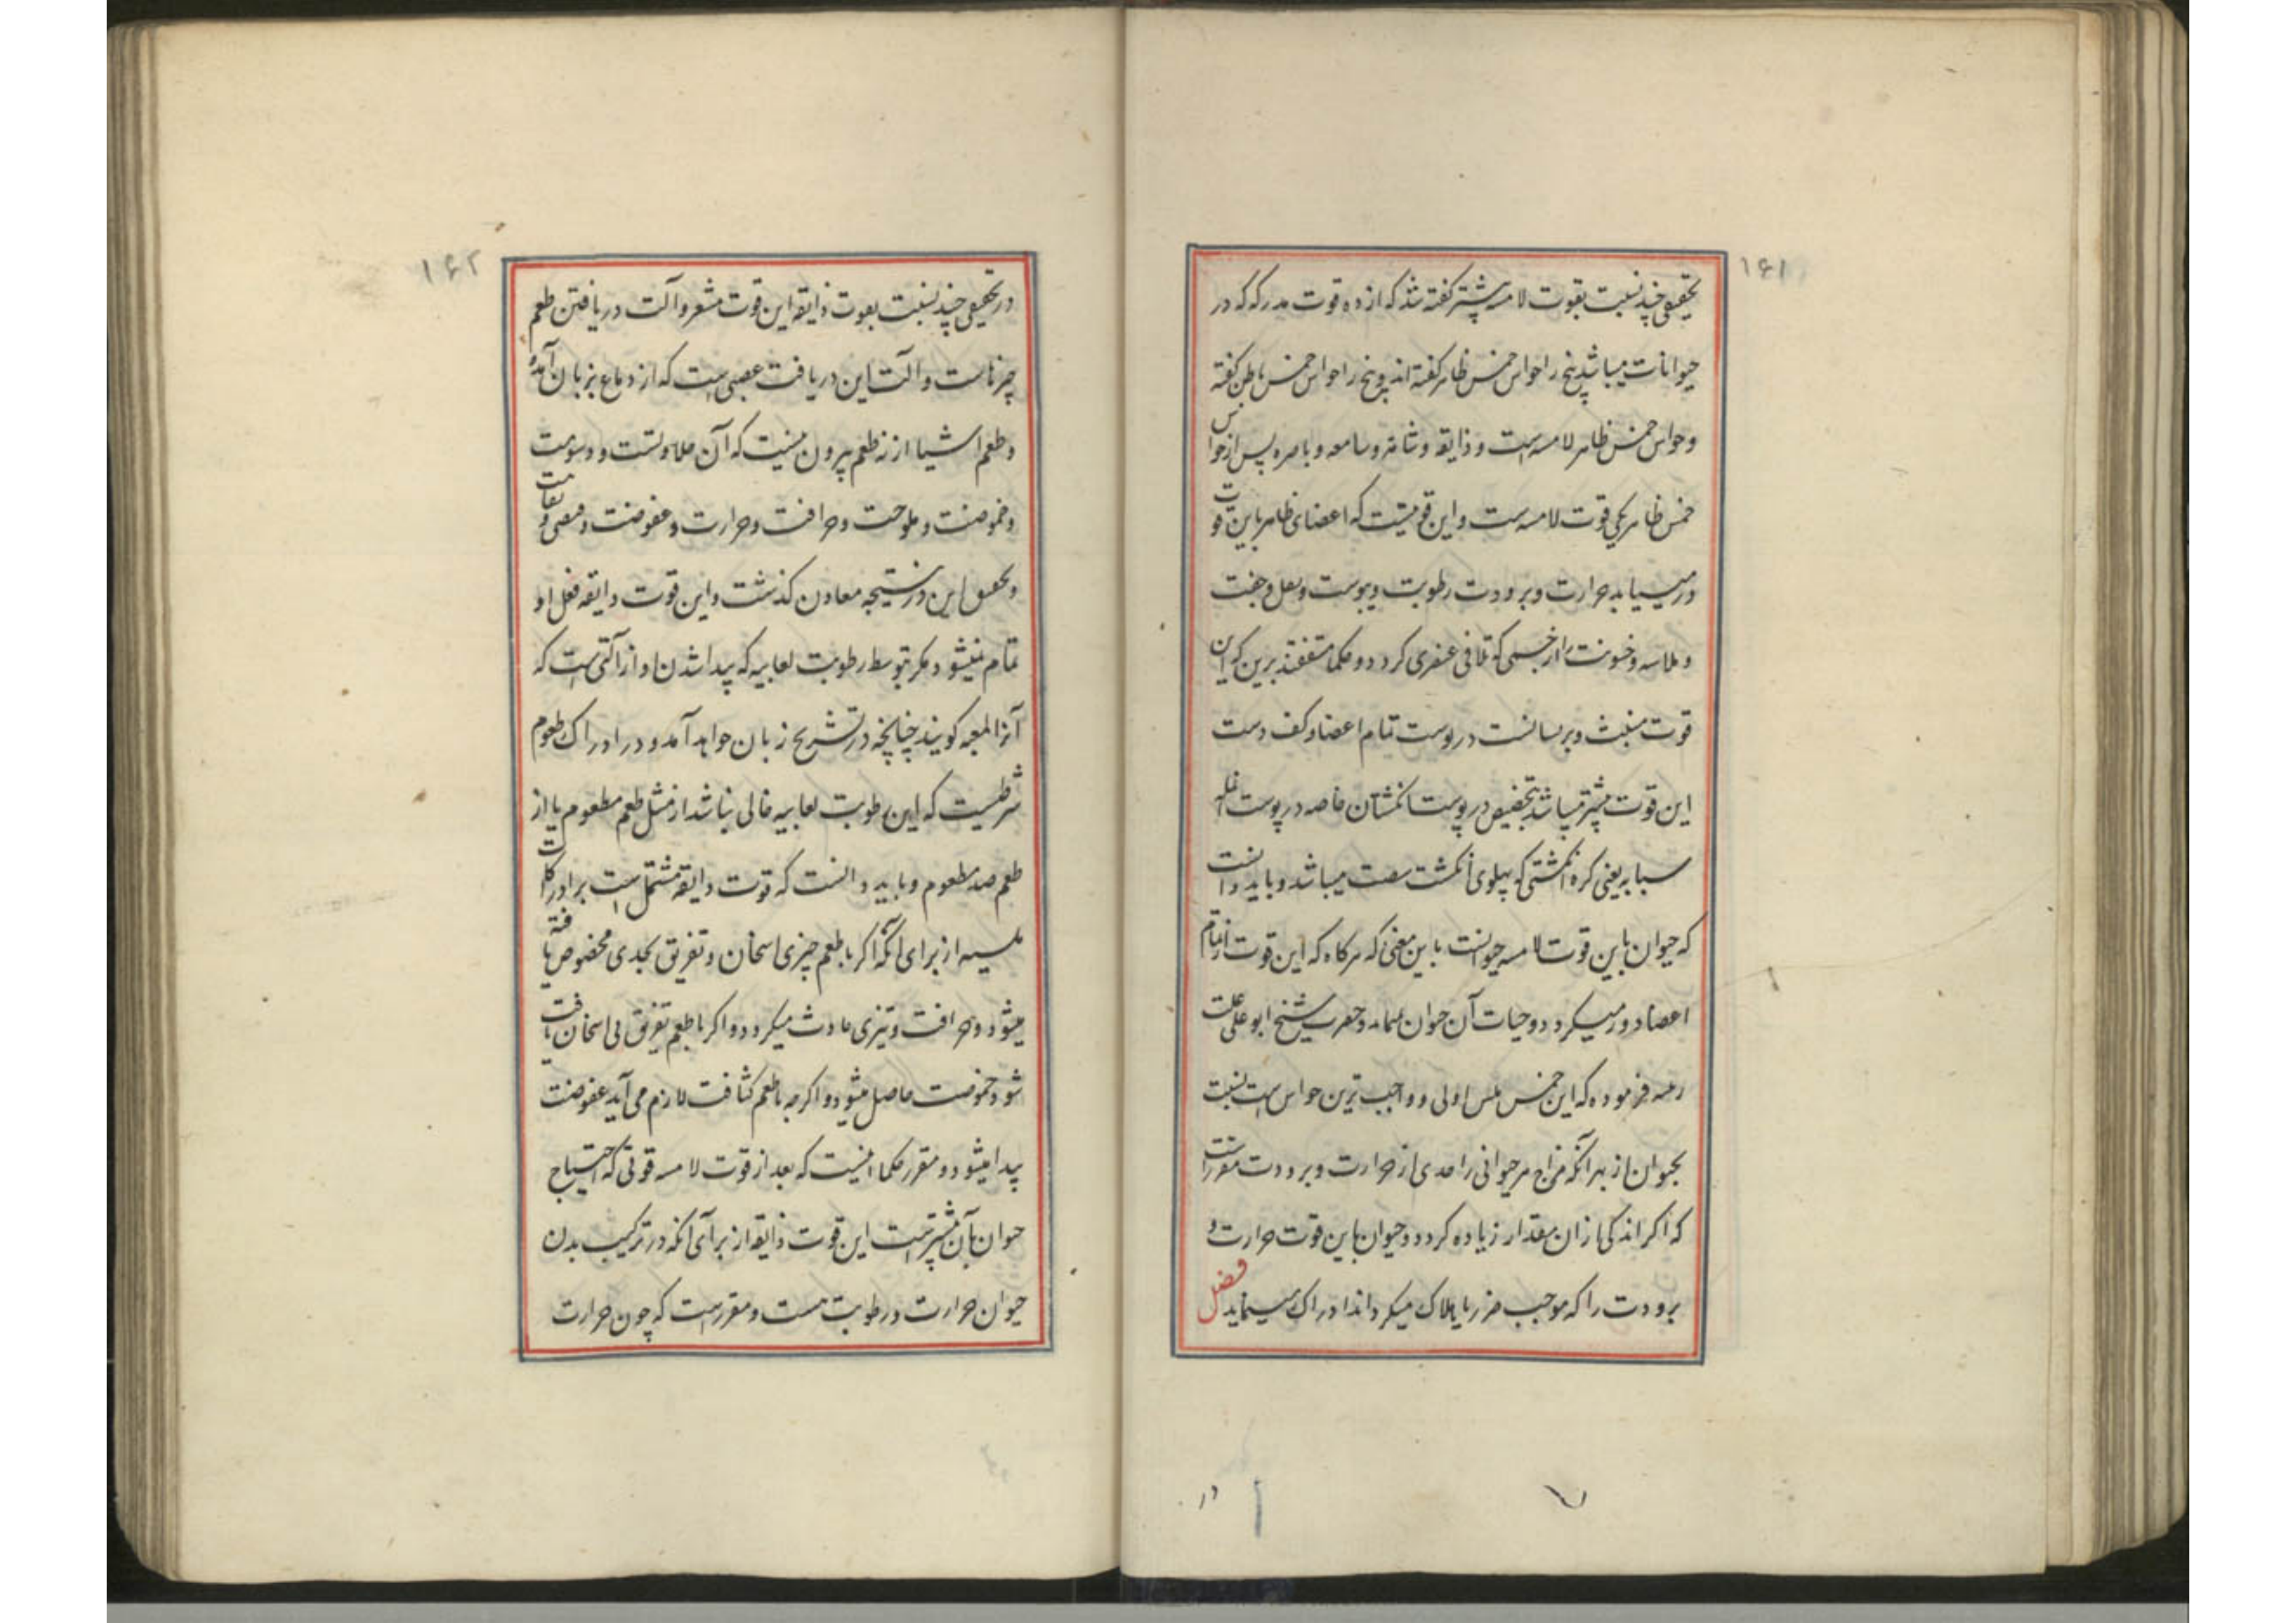 ۱۶۱
تحقیقی چند نسبت بقوت لامسه پیشتر گفته شد که از ده قوت مدرکه که در
حیوانات میباشد پنج را حواس خمس ظاهر گفته اند و پنج را حواس خمس باطن گفته
و حواس خمس ظاهر لامسه است و ذایقه و شامه و سامعه و باصره پس از حواس
خمس ظاهر یکی قوت لامسه است و این قوتیست که اعضای ظاهر باین قوت
در میسیابد حرارت و برودت رطوبت و یبوست و ثقل و خفت
و ملاسه و خشونت را از جسمی که تلاقی عنصری کردد و حکما متفقند برین که این
قوت منبث و برسانست در پوست تمام اعضا و کف دست
این قوت پیشتر میباشد بتخصیص در پوست انکشتان خاصه در پوست انمله
سبابه یعنی کره انکشتی که پهلوی انکشت شصت میباشد و باید دانست
که حیوان باین قوت لامسه حیوانست باین معنی که هرکاه که این قوت از تمام
اعضا دور میکردد و حیات آن حیوان نمیماند و حضرت شیخ ابو علی علیه
رحمه فرموده که این خمس لمس اولی و واجب ترین حواس است نسبت
بحیوان از بهر آنکه مزاج هر حیوانی را حدی از حرارت و برودت مقرراست
که اکر اندکی از ان مقدار زیاده کردد و حیوان باین قوت حرارت و
برودت را که موجب ضرر یا هلاک میکرداند ادراک مینماید فصل
در
۱۶۲
در تحقیقی چند نسبت بقوت ذایقه این قوت مشعر و آلت دریافتن طعم
چیزهاست و آلت این دریافت عصبی است که از دماغ بزبان آمده
و طعم اشیا از نه طعم بیرون نیست که آن حلاوتست و دسومت
و حموضت و ملوحت و حرافت و حرارت و عفوصت و قبض و تفاهت
و تحقیق این در نتیجه معادن کذشت و این قوت ذایقه فعل او
تمام نمیشود مکر بتوسط رطوبت لعابیه که پیدا شدن او از آلتی است که
آنرا لمعبه کویند چنانچه در تشریح زبان خواهد آمد و در ادراک طعوم
شرطیست که این رطوبت لعابیه خالی باشد از مثل طعم مطعوم یا از
طعم ضد مطعوم و باید دانست که قوت ذایقه مشتمل است بر ادراکات
لمسیه از برای آنکه اکر با طعم چیزی اسخان و تفریق بحدی مخصوص یافته
میشود و حرافت و تیزی حادث میکردد و اکر با طعم تفریق بی اسخان یافت
شود حموضت حاصل میشود و اکر چه با طعم کثافت لازم می آید عفوصت
پیدا میشود و مقرر حکما اینست که بعد از قوت لامسه قوتی که احتیاج
حیوان بآن پیشتر است این قوت ذایقه از برای آنکه در ترکیب بدن
حیوان حرارت و رطوبت هست و مقرر است که چون حرارت